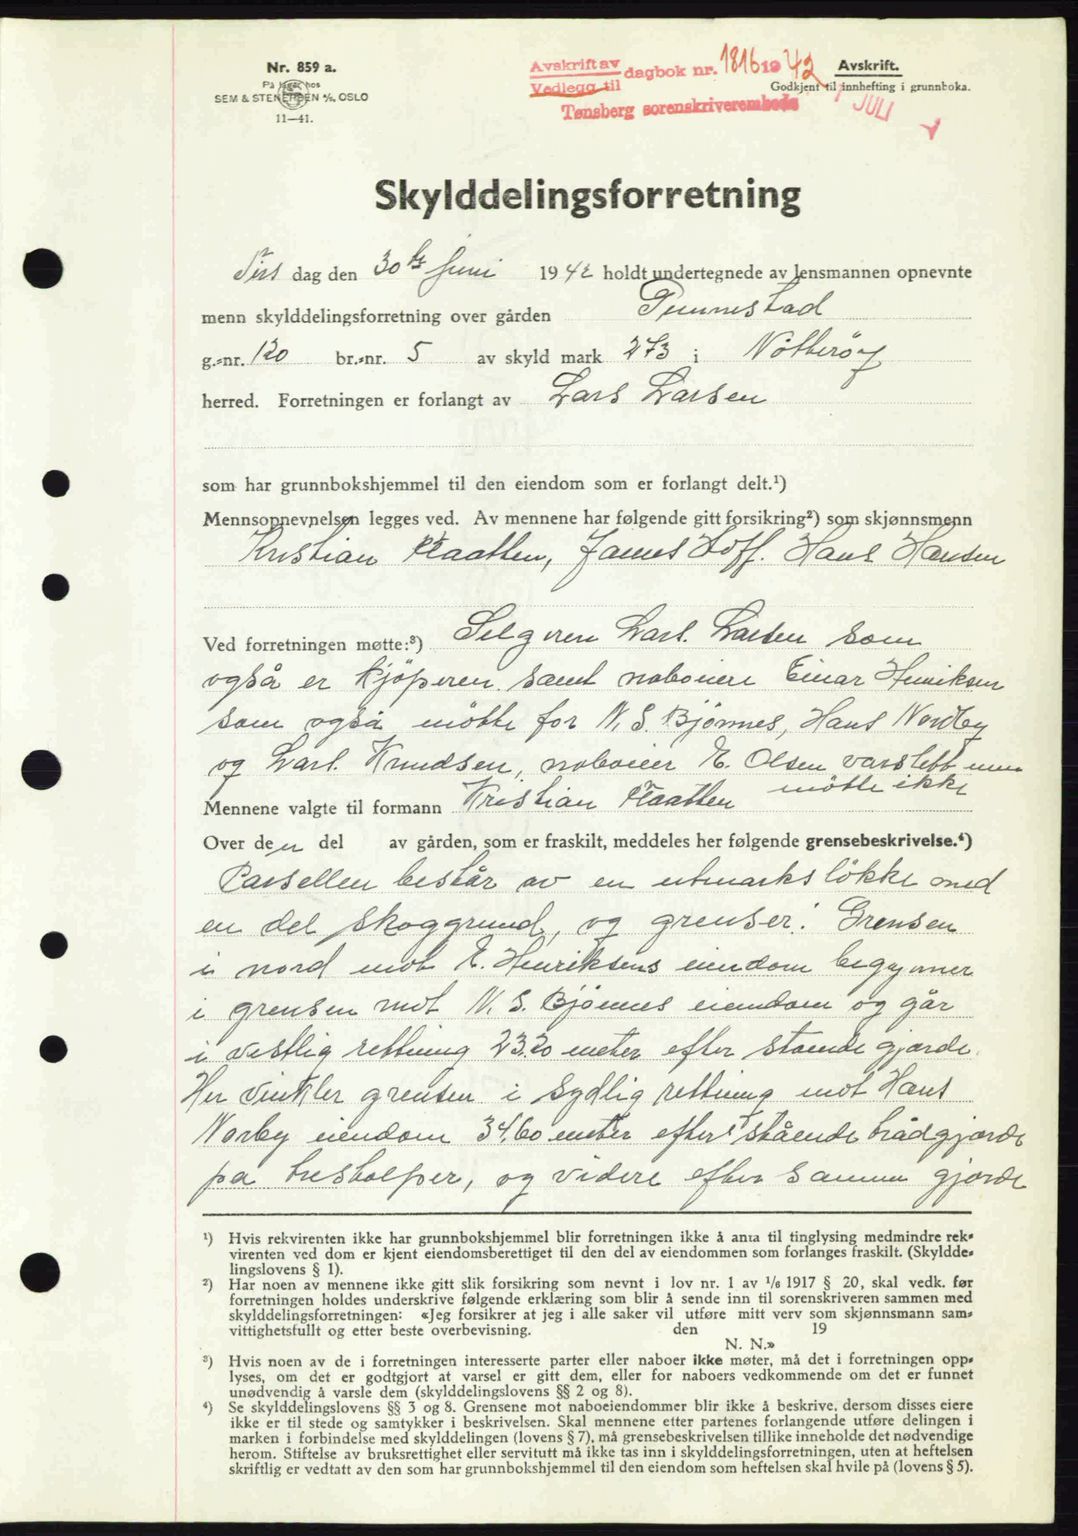 Nr. 859 a.
På lager hos
SEM & STENERSEN A/S, OSLO
11—41.
Avskrift av
Vedlegg til
dagbok nr. 1816 1942
Tønsberg sorenskriverembede
Avskrift.
Godkjent til innhefting i grunnboka.
1 JULI
Skylddelingsforretning
Tirs dag den 30te Juni 1942 holdt undertegnede av lensmannen opnevnte
menn skylddelingsforretning over gården
g.-nr. 120 br.-nr. 5 av skyld mark 273 i Nötteröy
herred. Forretningen er forlangt av Lars Larsen
som har grunnbokshjemmel til den eiendom som er forlangt delt.¹)
Mennsopnevnelsen legges ved. Av mennene har følgende gitt forsikring²) som skjønnsmenn
Kristian Flaatten, James Hoff. Hans Hansen
Ved forretningen møtte:³) Selgeren Lars Larsen som
også er kjöperen samt naboeiere Einar Henriksen
som også mötte for N. S. Bjönnes, Hans Nordby
og Lars Knudsen, naboeier E. Olsen varslett men
mötte ikke
Mennene valgte til formann Kristian Flaatten
Over den del av gården, som er fraskilt, meddeles her følgende grensebeskrivelse.⁴)
Parsellen består av en utmarkslökke med
en del skoggrund, og grenser: Grensen
i nord mot E. Henriksens eiendom begynner
i grensen mot N. S. Bjönnes eiendom og går
i vestlig rettning 23.20 meter efter stående gjærde.
Her vinkler grensen i sydlig rettning mot Hans
Norby eiendom 34,60 meter efter stående trådgjærde
på trestolper, og videre efter samme gjærde
¹) Hvis rekvirenten ikke har grunnbokshjemmel blir forretningen ikke å anta til tinglysing medmindre rek-
virenten ved dom er kjent eiendomsberettiget til den del av eiendommen som forlanges fraskilt. (Skyldde-
lingslovens § 1).
²) Har noen av mennene ikke gitt slik forsikring som nevnt i lov nr. 1 av 1/6 1917 § 20, skal vedk. før
forretningen holdes underskrive følgende erklæring som blir å sende inn til sorenskriveren sammen med
skylddelingsforretningen: «Jeg forsikrer at jeg i alle saker vil utføre mitt verv som skjønnsmann sam-
vittighetsfullt og etter beste overbevisning. den 19
N. N.»
³) Hvis noen av de i forretningen interesserte parter eller naboer ikke møter, må det i forretningen opp-
lyses, om det er godtgjort at varsel er gitt dem, eller for naboers vedkommende om det er funnet
unødvendig å varsle dem (skylddelingslovens §§ 2 og 8).
⁴) Se skylddelingslovens §§ 3 og 8. Grensene mot naboeiendommer blir ikke å beskrive, dersom disses eiere
ikke er til stede og samtykker i beskrivelsen. Skal mennene etter partenes forlangende utføre delingen i
marken i forbindelse med skylddelingen (lovens § 7), må grensebeskrivelsen tillike inneholde det nødvendige
herom. Stiftelse av bruksrettighet eller servitutt må ikke tas inn i skylddelingsforretningen, uten at heftelsen
skriftlig er vedtatt av den som har grunnbokshjemmel til den eiendom som heftelsen skal hvile på (lovens § 5).